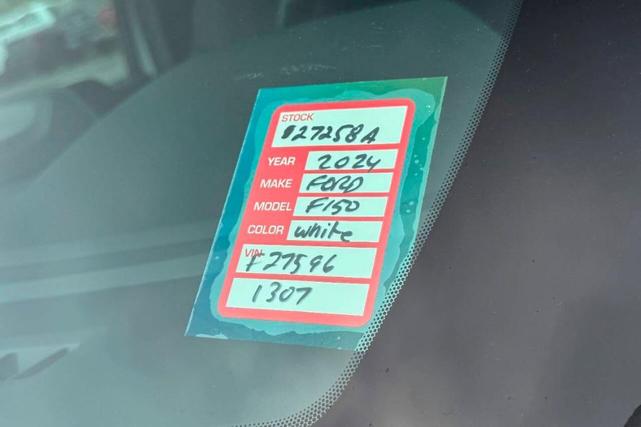 STOCK
827258A
YEAR 2024
MAKE FORD
MODEL F150
COLOR white
VIN
F27596
1307